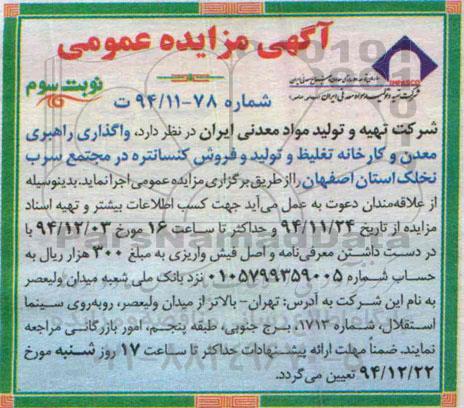 آگهی مزایده عمومی
نوبت سوم
IMPASCO
شرکت تهیه و تولید مواد معدنی ایران
شماره ۷۸-۹۴/۱۱ ت
شرکت تهیه و تولید مواد معدنی ایران در نظر دارد، واگذاری راهبری
معدن و کارخانه تغلیظ و تولید و فروش کنسانتره در مجتمع سرب
نخلک استان اصفهان را از طریق برگزاری مزایده عمومی اجرا نماید. بدینوسیله
از علاقه‌مندان دعوت به عمل می‌آید جهت کسب اطلاعات بیشتر و تهیه اسناد
مزایده از تاریخ ۹۴/۱۱/۲۴ و حداکثر تا ساعت ۱۶ مورخ ۹۴/۱۲/۰۳ با
در دست داشتن معرفی‌نامه و اصل فیش واریزی به مبلغ ۳۰۰ هزار ریال به
حساب شماره ۰۱۰۵۷۹۹۳۵۹۰۰۵ نزد بانک ملی شعبه میدان ولیعصر
به نام این شرکت به آدرس: تهران- بالاتر از میدان ولیعصر، روبه‌روی سینما
استقلال، شماره ۱۷۱۳، برج جنوبی، طبقه پنجم، امور بازرگانی مراجعه
نمایند. ضمناً مهلت ارائه پیشنهادات حداکثر تا ساعت ۱۷ روز شنبه مورخ
۹۴/۱۲/۲۲ تعیین می‌گردد.